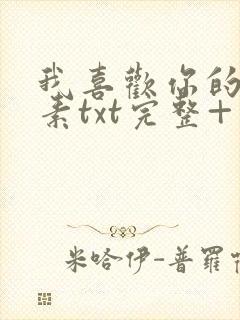 我喜歡你的
素txt完整+
米哈伊-普羅